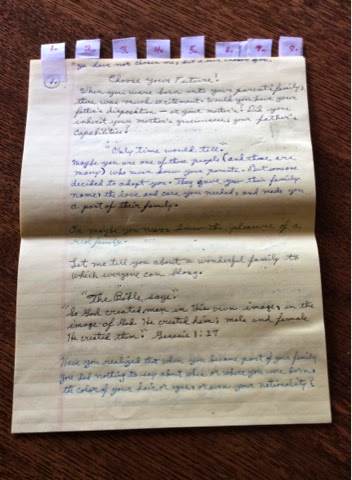 1.
2.
3.
4.
5.
6.
7.
8.
"Ye have not chosen me, but I have chosen you,
Choose Your Future!
When you were born into your parent's family,
there was much excitement. Would you have your
father's disposition or your mother's? Did you
inherit your mother's graciousness, your father's
capabilities?
"Only time would tell."
Maybe you are one of those people (and there are
many) who never knew your parents. But someone
decided to adopt you. They gave you their family
name, the love and care you needed, and made you
a part of their family.
Or maybe you never knew the pleasure of a
real family.
Let me tell you about a wonderful family to
which everyone can belong.
"The Bible says:"
"So God created man in His own image, in the
image of God He created him; male and female
He created them." Genesis 1:27
Have you realized that when you became part of your family,
you had nothing to say about when or where you were born,
the color of your hair or eyes, or even your nationality?